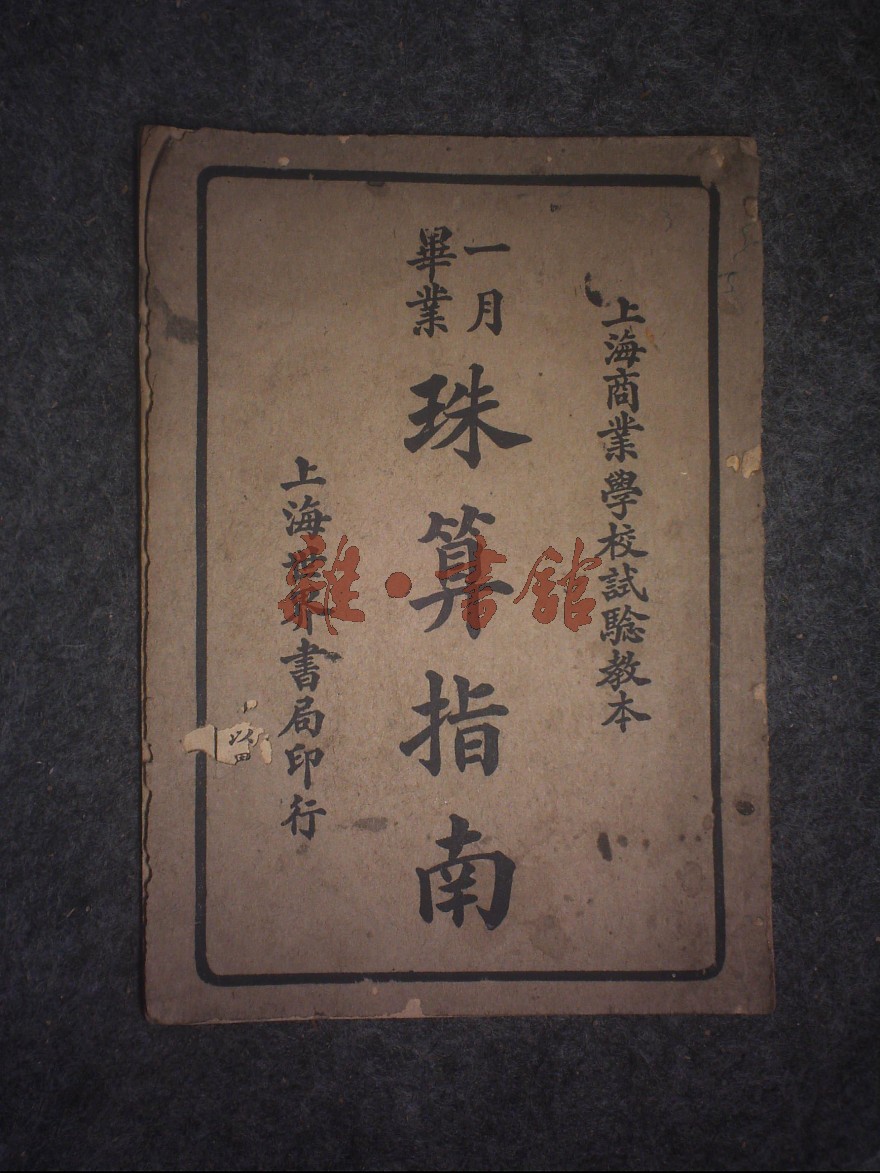 上海商業學校試驗教本
一月
畢業
珠算指南
上海世界書局印行
雜·書館